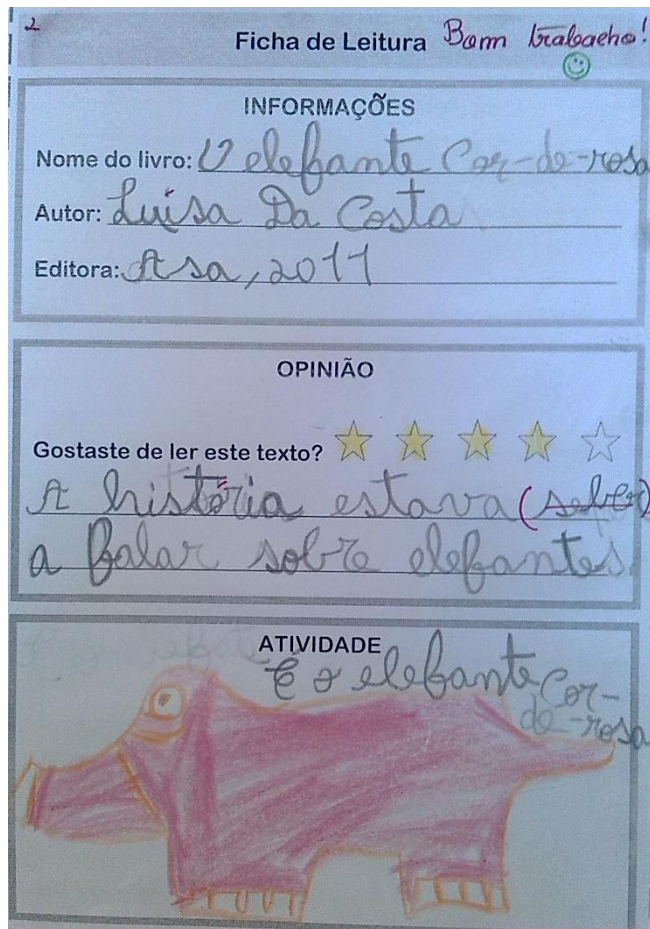 2
Ficha de Leitura Bom trabalho!
INFORMAÇÕES
Nome do livro: O elefante Cor-de-rosa
Autor: Luísa Da Costa
Editora: Asa, 2011
OPINIÃO
Gostaste de ler este texto?
A história estava (sobre)
a falar sobre elefantes.
ATIVIDADE
É o elefante Cor-
de-rosa